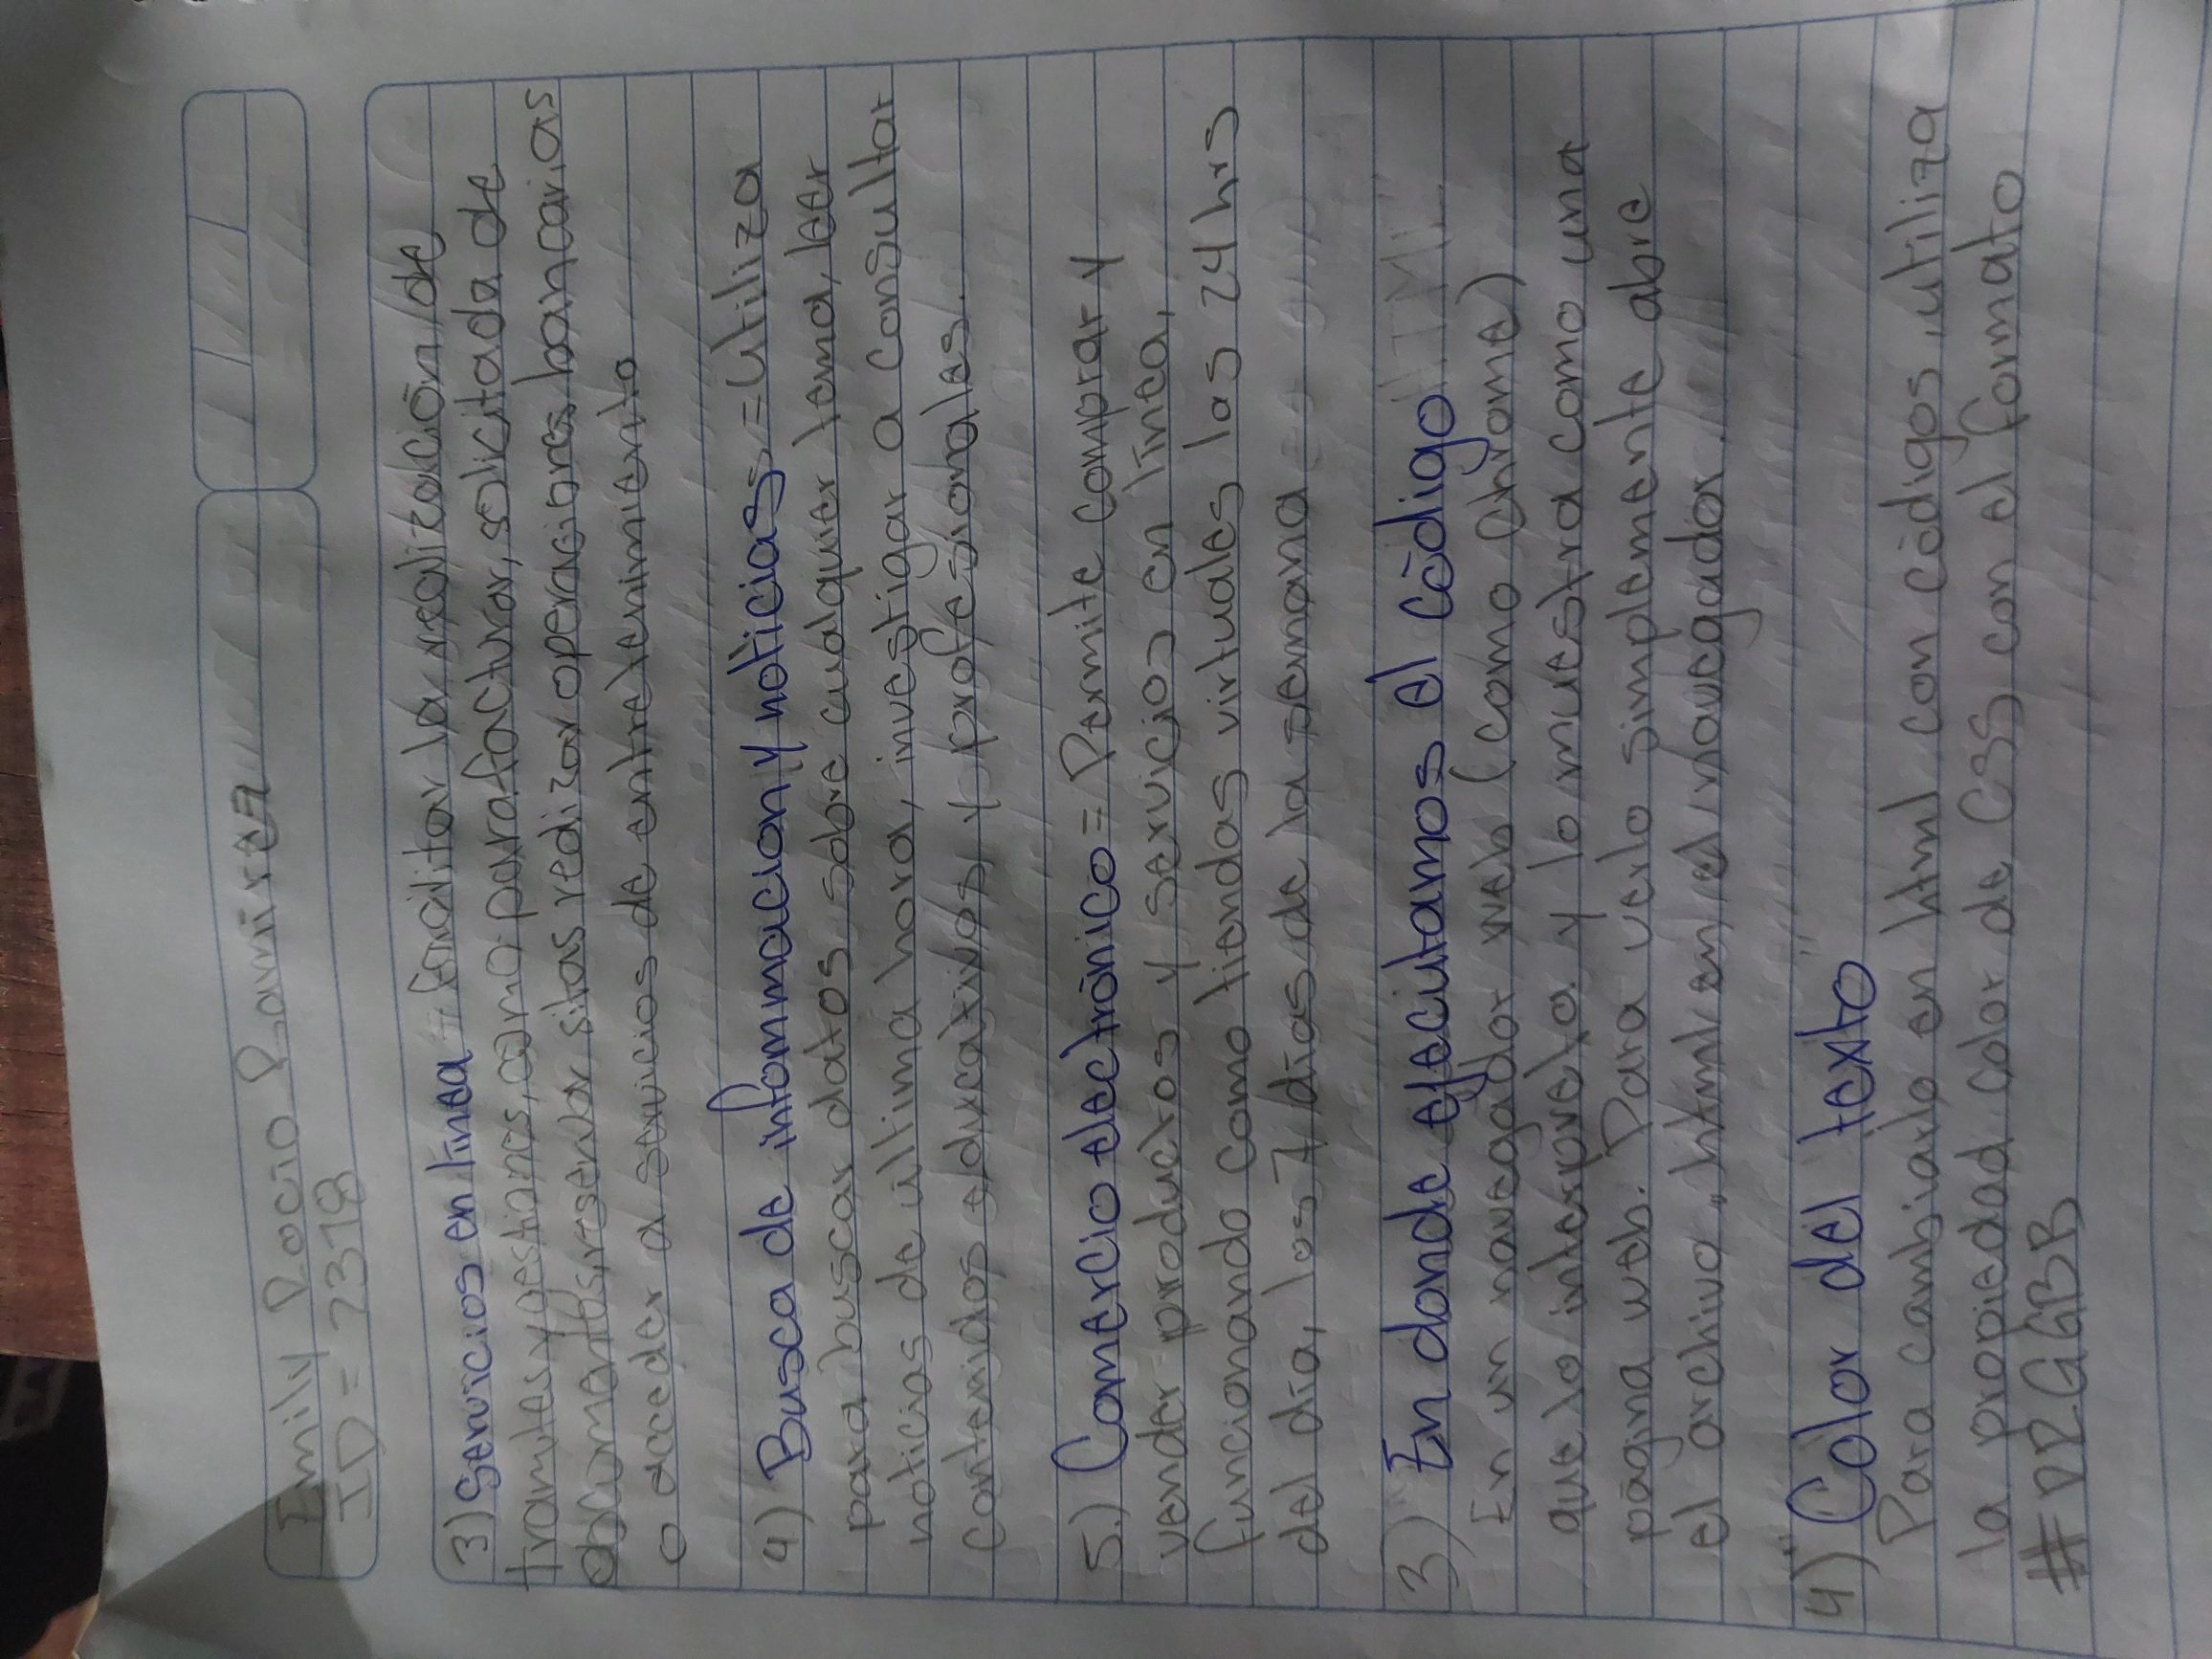 Emily Rocio Ramirez
ID = 2378
3) Servicios en línea = facilitar la realización de
tramites y gestiones, como para facturar, solicitada de
documentos, reservar sitas redizar operaciones bancarias
o acceder a servicios de entretenimiento
4) Busca de infommacion y noticias = Utiliza
para buscar datos sobre cualquier tema, leer
noticias de ultima hora, investigar a consultar
contenidos educativos y profesionales.
5.) Comercio electrónico = Permite comprar y
vender productos y servicios en linea,
funcionando como tiendas virtuales las 24 hrs
del día, los 7 días de la semana
3) En donde ejecutamos el código
En un navegador web (como chrome)
que lo interpreta y lo muestra como una
página web. Para verlo simplemente abre
el archivo .html en el navegador.
4) Color del texto
Para cambiarlo en html con códigos, utiliza
la propiedad color de CSS con el formato
#RRGGBB